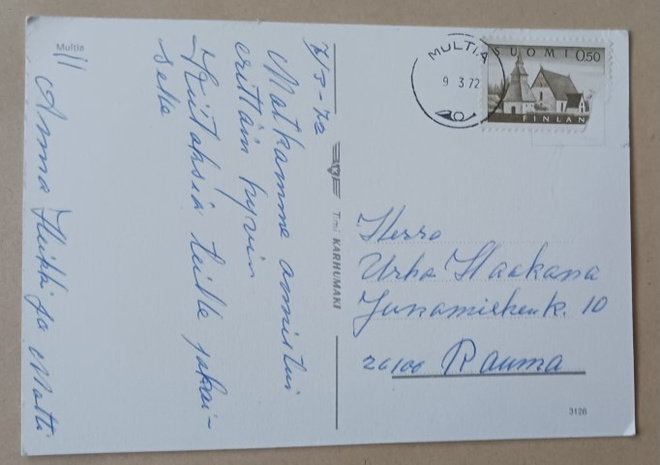 Multia
7/3-72
Matkamme onnistui
erittäin hyvin
Kiitoksia teille jokai-
selle
Anna Heikki ja Matti
Toimi KARHUMÄKI
MULTIA
9 3 72
SUOMI 0,50
FINLAND
Herra
Urho Haakana
Junamiehenk. 10
26100 Rauma
3126